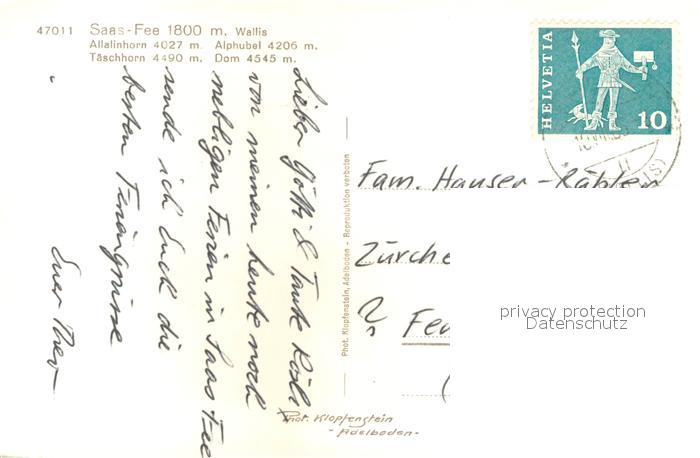 47011 Saas-Fee 1800 m, Wallis
Allalinhorn 4027 m. Alphubel 4206 m.
Täschhorn 4490 m. Dom 4545 m.
Lieber Götti & Tante Rösli
von meinen heute noch
nebligen Ferien in Saas Fee
sende ich Euch die
besten Feriengrüsse
Euer
Phot. Klopfenstein, Adelboden - Reproduktion verboten
HELVETIA
10
Fam. Hauser-
Zürche
Phot. Klopfenstein
- Adelboden -
privacy protection
Datenschutz